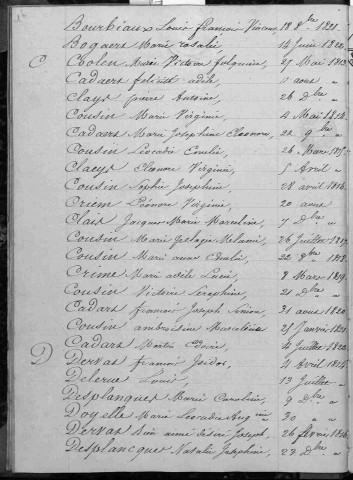 Bourbiaux Louis francois Vincent, 18 8bre 1821.
Bogaers Marie rosalie, 14 Juin 1822.
C Colen Marie Victoire, 27 Mai 1812.
Cadaers félicité adèle, 11 aout "
Clays pierre Antoine, 26 Dbre "
Cousin Marie Virginie, 4 Mai 1814.
Cadars Marie Joséphine Eléonore, 22 9bre "
Cousin Léocadie Emelie, 26 Mars
Claeys Eléonore Virginie, 5 Avril "
Cousin Sophie Joséphine, 28 avril 1816.
Criem Léonore Virginie, 20 aout "
Clais Jacques Marie Marcelin, 7 Dbre "
Cousin Marie pelagie Melanie, 26 Juillet 1817.
Cousin Marie anne Emelie, 22 8bre 1818.
Crime Marie adèle Lucie, 8 Mars 1819.
Cousin Victoire Séraphine, 21 Dbre "
Cadars francois Joseph Simon, 31 aout 1820
Cousin ambroisine, 25 Janvier 1821.
Cadars Martin, 4 Juillet 1822.
D Dervas francois Isidor, 4 Avril 1814.
Delerue Louis, 13 Juillet "
Desplanques Marie Caroline, 9 Dbre "
Doyelle Marie Léocadie, 30 " "
Dervas aimé désiré Joseph, 26 février 1816.
Desplancque Natalie Joséphine, 23 Dbre "